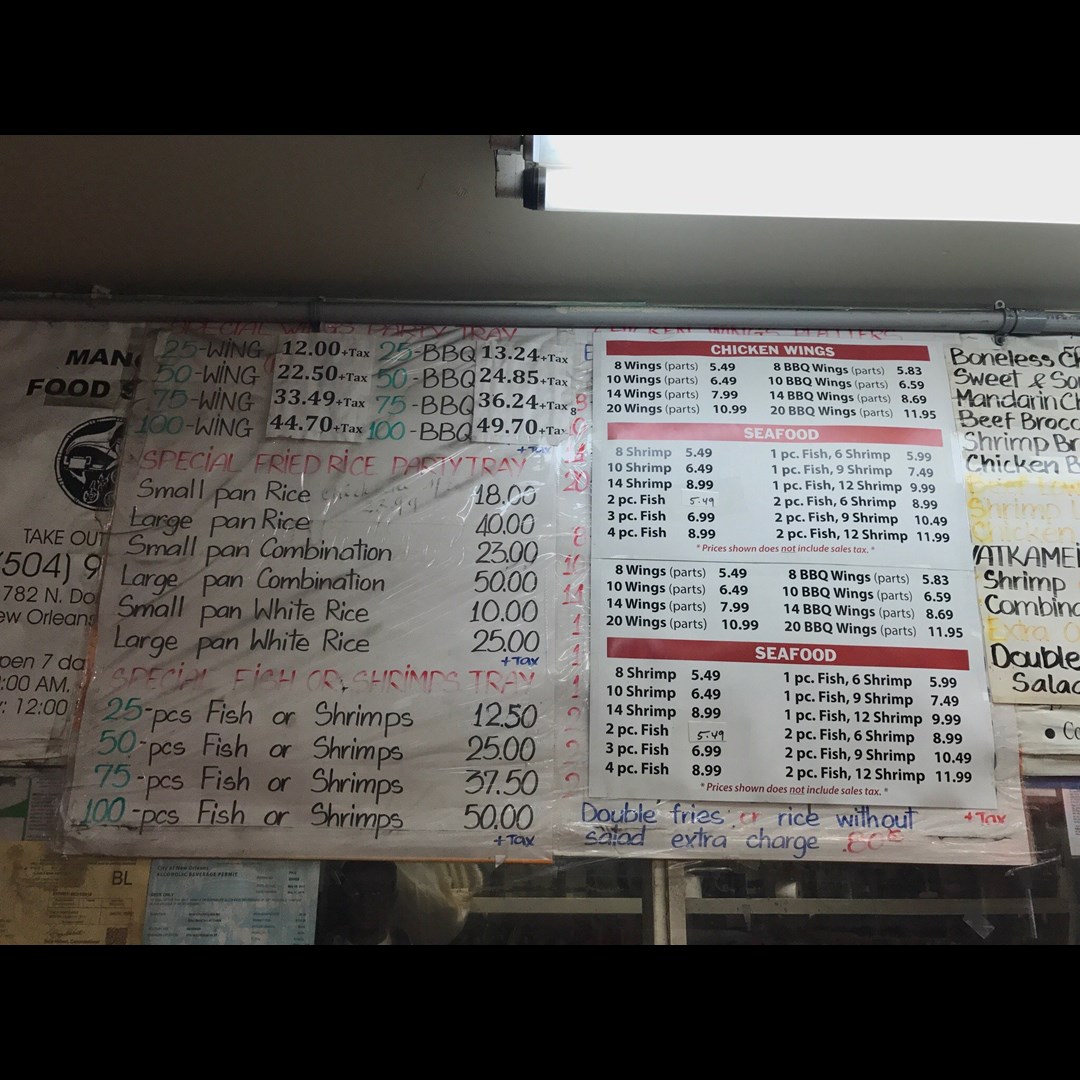 MAN
FOOD
TAKE OUT
(504) 9
782 N. Do
ew Orleans
pen 7 da
:00 AM.
: 12:00
SPECIAL WINGS PARTY TRAY
25-WING 12.00+Tax 25-BBQ 13.24+Tax
50-WING 22.50+Tax 50-BBQ 24.85+Tax
75-WING 33.49+Tax 75-BBQ 36.24+Tax
100-WING 44.70+Tax 100-BBQ 49.70+Tax
+Tax
SPECIAL FRIED RICE PARTY TRAY
Small pan Rice 18.00
Large pan Rice 40.00
Small pan Combination 23.00
Large pan Combination 50.00
Small pan White Rice 10.00
Large pan White Rice 25.00
+Tax
SPECIAL FISH OR SHRIMPS TRAY
25-pcs Fish or Shrimps 12.50
50-pcs Fish or Shrimps 25.00
75-pcs Fish or Shrimps 37.50
100-pcs Fish or Shrimps 50.00
+Tax
CHICKEN WINGS
8 Wings (parts) 5.49 8 BBQ Wings (parts) 5.83
10 Wings (parts) 6.49 10 BBQ Wings (parts) 6.59
14 Wings (parts) 7.99 14 BBQ Wings (parts) 8.69
20 Wings (parts) 10.99 20 BBQ Wings (parts) 11.95
SEAFOOD
8 Shrimp 5.49 1 pc. Fish, 6 Shrimp 5.99
10 Shrimp 6.49 1 pc. Fish, 9 Shrimp 7.49
14 Shrimp 8.99 1 pc. Fish, 12 Shrimp 9.99
2 pc. Fish 5.49 2 pc. Fish, 6 Shrimp 8.99
3 pc. Fish 6.99 2 pc. Fish, 9 Shrimp 10.49
4 pc. Fish 8.99 2 pc. Fish, 12 Shrimp 11.99
* Prices shown does not include sales tax. *
8 Wings (parts) 5.49 8 BBQ Wings (parts) 5.83
10 Wings (parts) 6.49 10 BBQ Wings (parts) 6.59
14 Wings (parts) 7.99 14 BBQ Wings (parts) 8.69
20 Wings (parts) 10.99 20 BBQ Wings (parts) 11.95
SEAFOOD
8 Shrimp 5.49 1 pc. Fish, 6 Shrimp 5.99
10 Shrimp 6.49 1 pc. Fish, 9 Shrimp 7.49
14 Shrimp 8.99 1 pc. Fish, 12 Shrimp 9.99
2 pc. Fish 5.49 2 pc. Fish, 6 Shrimp 8.99
3 pc. Fish 6.99 2 pc. Fish, 9 Shrimp 10.49
4 pc. Fish 8.99 2 pc. Fish, 12 Shrimp 11.99
* Prices shown does not include sales tax. *
Double fries or rice without +Tax
salad extra charge .80¢
Boneless Ch
Sweet & So
Mandarin Ch
Beef Brocc
Shrimp Br
Chicken B
Shrimp L
Chicken
YATKAMEI
Shrimp
Combina
Extra O
Double
Salad
• Co
BL
ALCOHOLIC BEVERAGE PERMIT